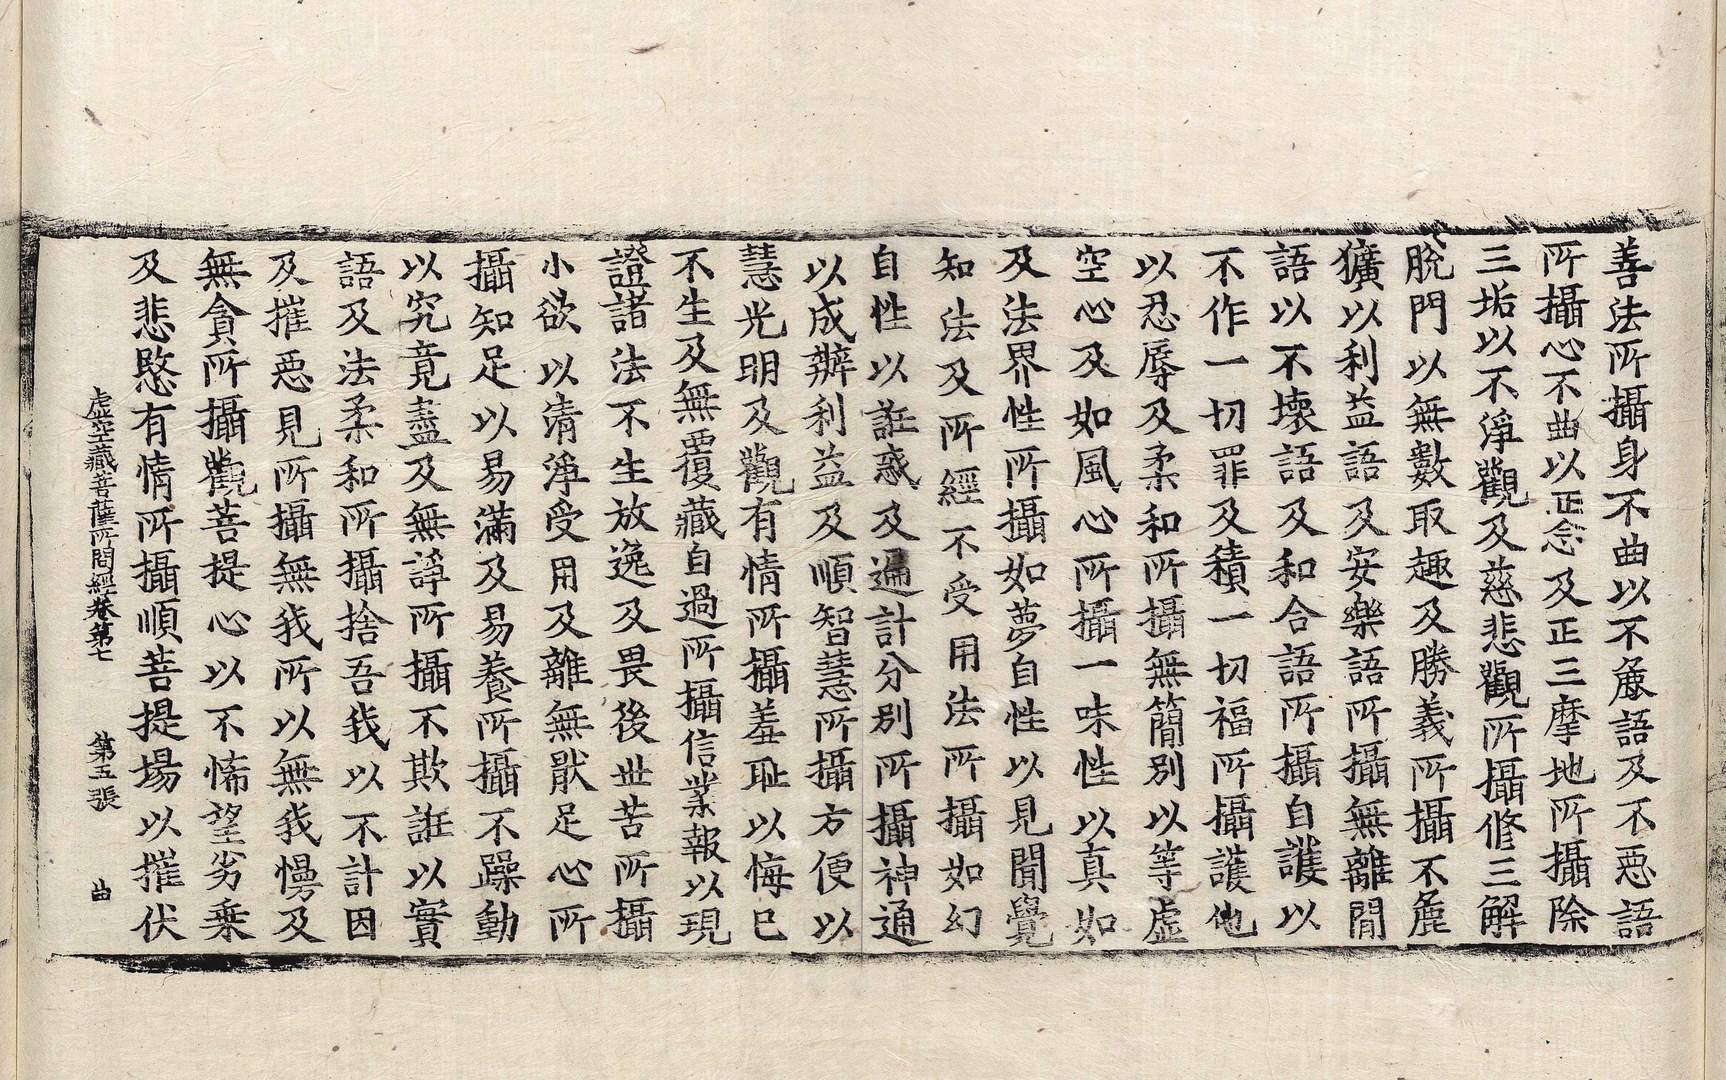 善法所攝身不曲以不麁語及不惡語
所攝心不曲以正念及正三摩地所攝除
三垢以不淨觀及慈悲觀所攝修三解
脫門以無數取趣及勝義所攝不麁
獷以利益語及安樂語所攝無離間
語以不壞語及和合語所攝自護以
不作一切罪及積一切福所攝護他
以忍辱及柔和所攝無簡別以等虛
空心及如風心所攝一味性以真如
及法界性所攝如夢自性以見聞覺
知法及所經不受用法所攝如幻
自性以誑惑及遍計分別所攝神通
以成辦利益及順智慧所攝方便以
慧光明及觀有情所攝羞恥以悔已
不生及無覆藏自過所攝信業報以現
證諸法不生放逸及畏後世苦所攝
小欲以清淨受用及離無猒足心所
攝知足以易滿及易養所攝不躁動
以究竟盡及無諍所攝不欺誑以實
語及法柔和所攝捨吾我以不計因
及摧惡見所攝無我所以無我慢及
無貪所攝觀菩提心以不悕望劣乘
及悲愍有情所攝順菩提場以摧伏
虛空藏菩薩所問經卷第七 第五張 曲